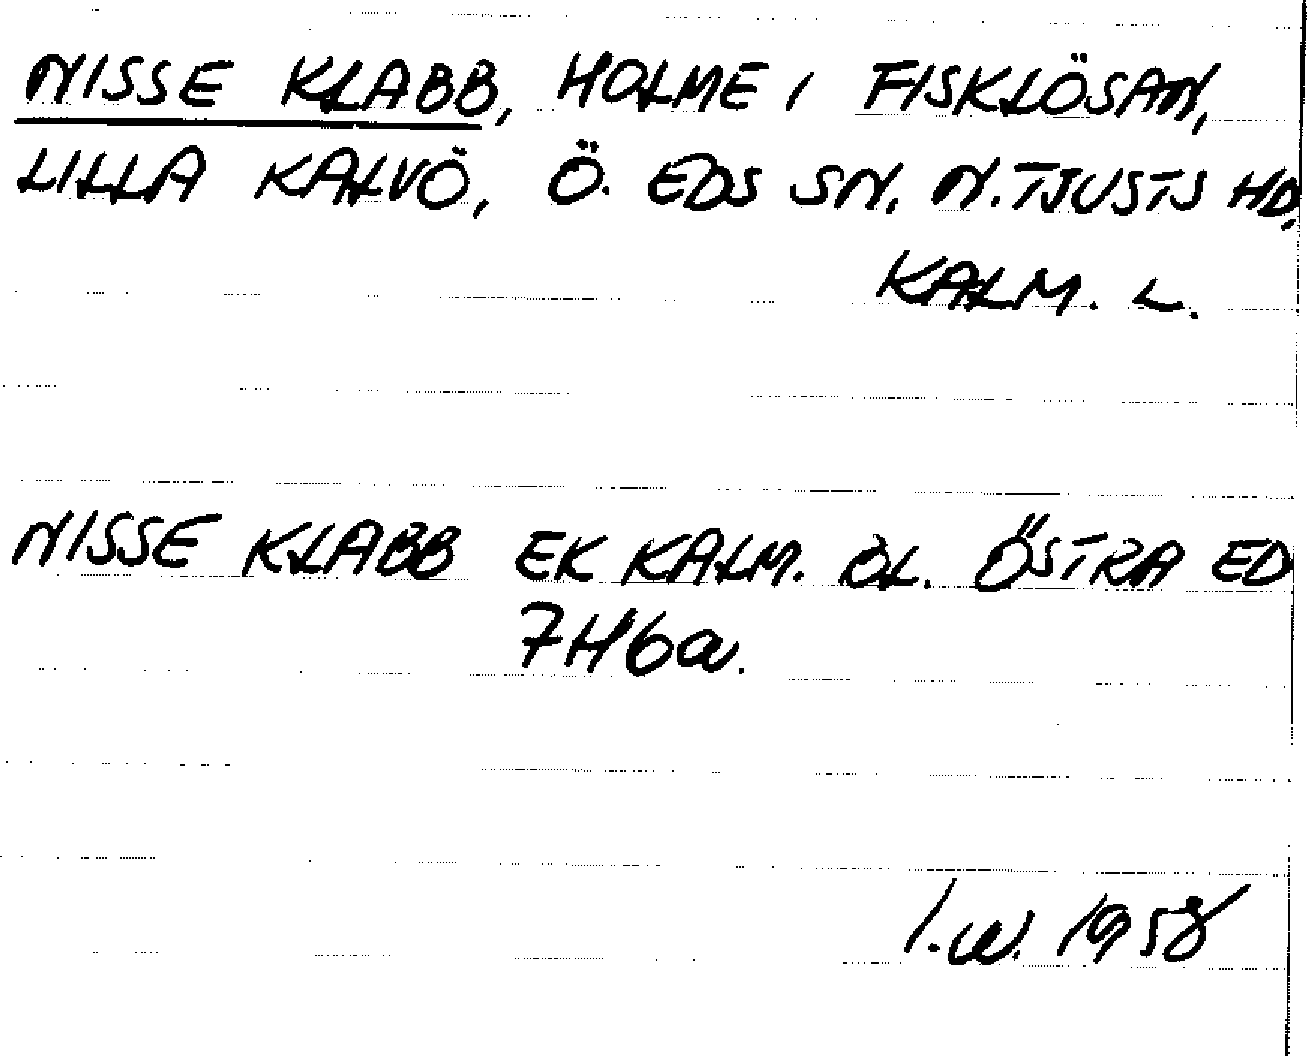 NISSE KLABB, HOLME I FISKLÖSAN,
LILLA KALVÖ, Ö. EDS SN. N. TJUSTS HD,
KALM. L.
NISSE KLABB EK KALM. ÖL. ÖSTRA ED
7H6a.
I.W. 1958